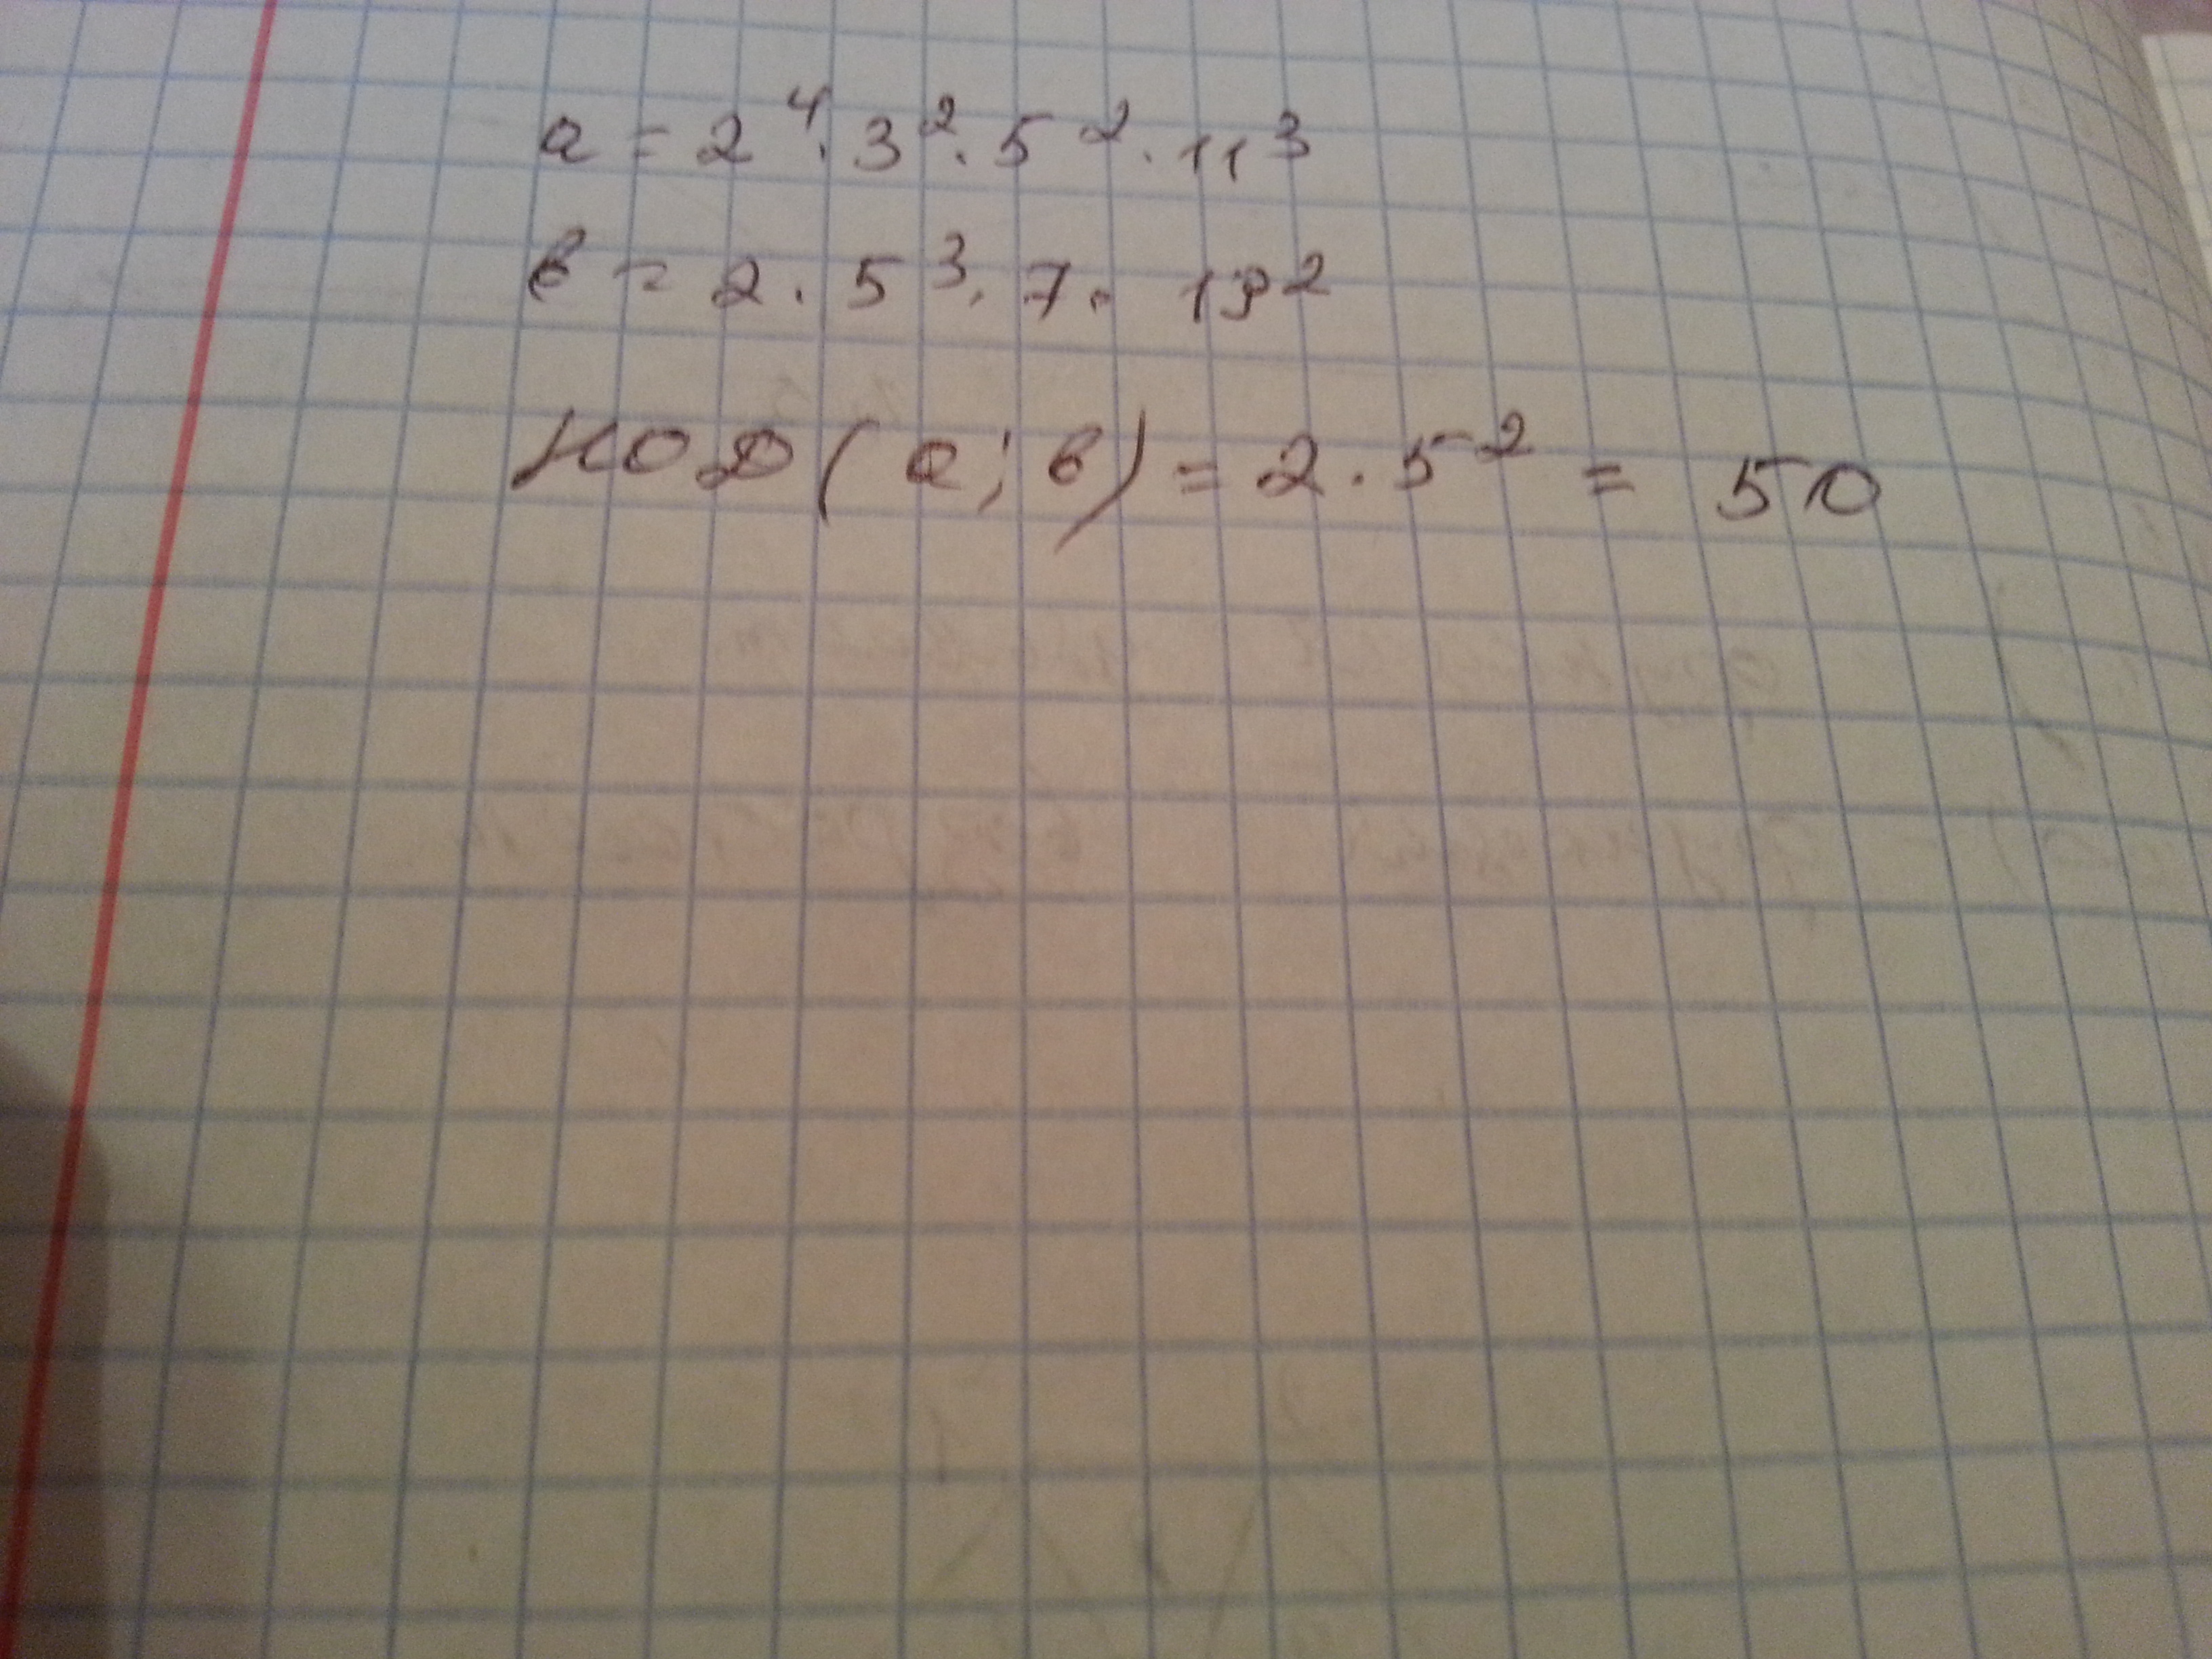 а = 2⁴ · 3² · 5² · 11³
в = 2 · 5³ · 7 · 19²
НОД (а; в) = 2 · 5² = 50